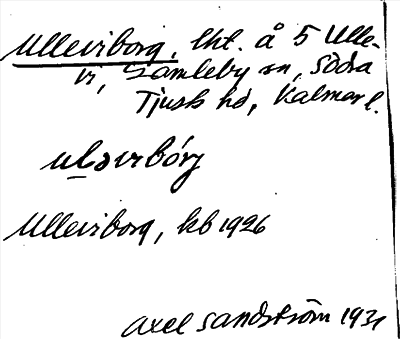 Ulleviborg, lht. å 5 Ulle-
vi, Gamleby sn, Södra
Tjusts hd, Kalmar l.
ulǝvirbórj
Ulleviborg, kb 1926
Axel Sandström 1931